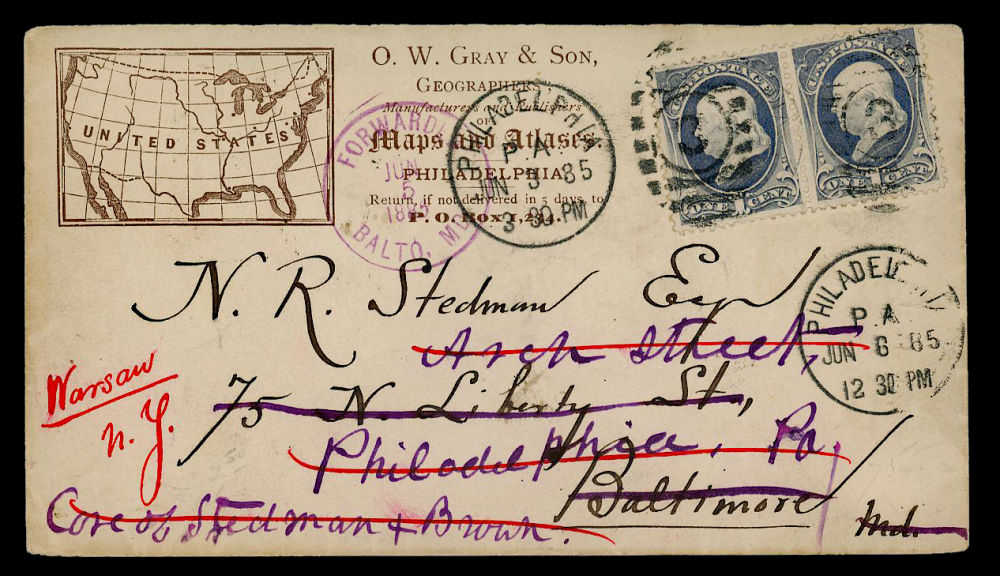 UNITED STATES
O. W. GRAY & SON,
GEOGRAPHERS
Manufacturers and Publishers
OF
Maps and Atlases
PHILADELPHIA
Return, if not delivered in 5 days, to
P. O. Box 1,234.
FORWARDED
JUN
5
1885
BALTO, MD
PHILADELPHIA
PA
JUN 3 85
3 30 PM
U.S. POSTAGE
ONE CENT
U.S. POSTAGE
ONE CENT
PHILADELPHIA
PA
JUN 6 85
12 30 PM
N. R. Stedman Esq
Arch Street,
75 N. Liberty St,
Philadelphia, Pa,
Baltimore
Md.
Care of Stedman & Brown.
Warsaw
N. Y.